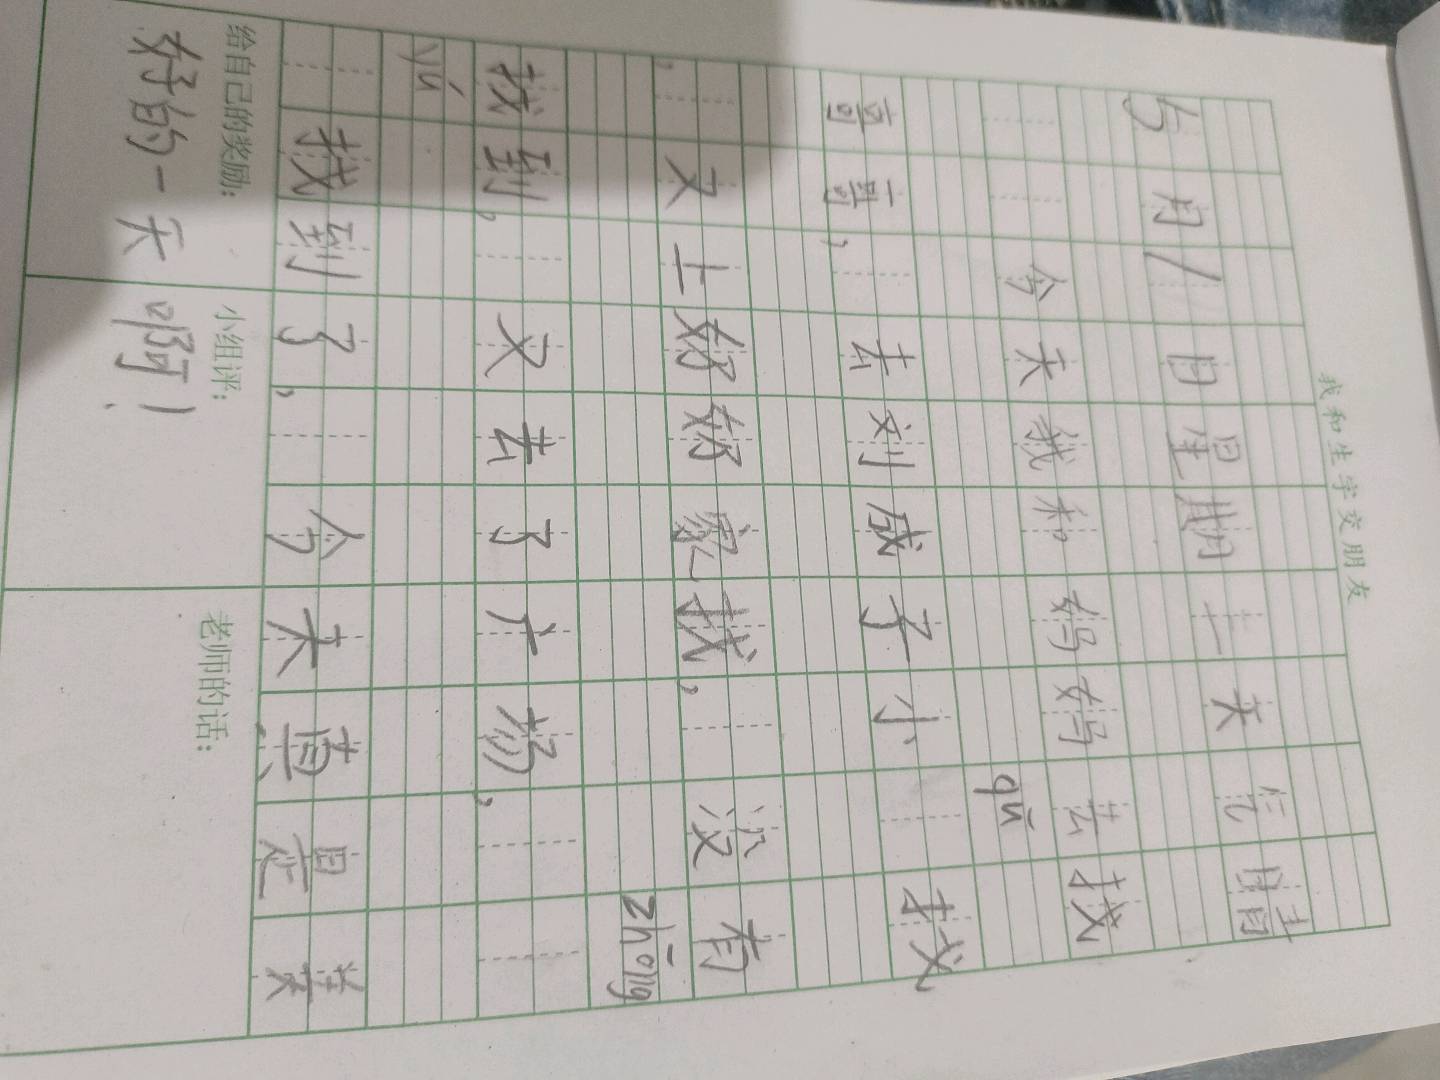 我和生字交朋友
5月1日星期一 天气晴
今天我和妈妈去找
qū
哥哥,去刘感子小 找
,又上奶奶家找, 没有
zhōng
找到, 又去了广场,
yú
找到了, 今天真是美
给自己的奖励: 小组评: 老师的话:
好的一天啊!